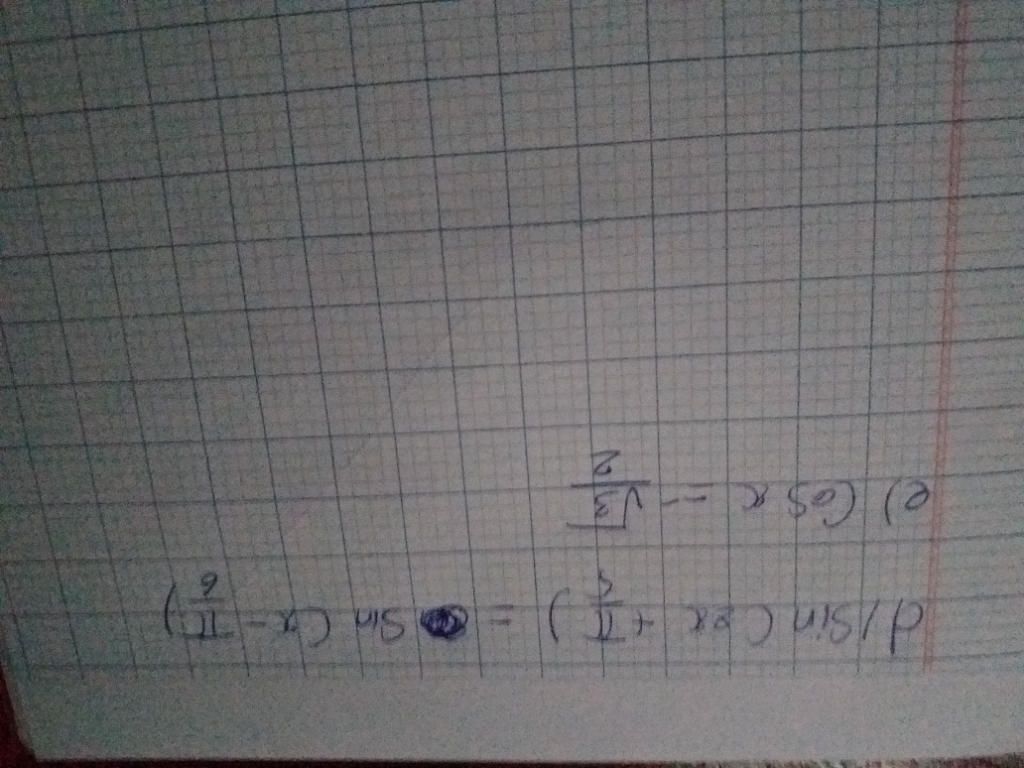 d) Sin (2x + π/5) = Sin (x - π/6)
e) Cos x = - √3/2